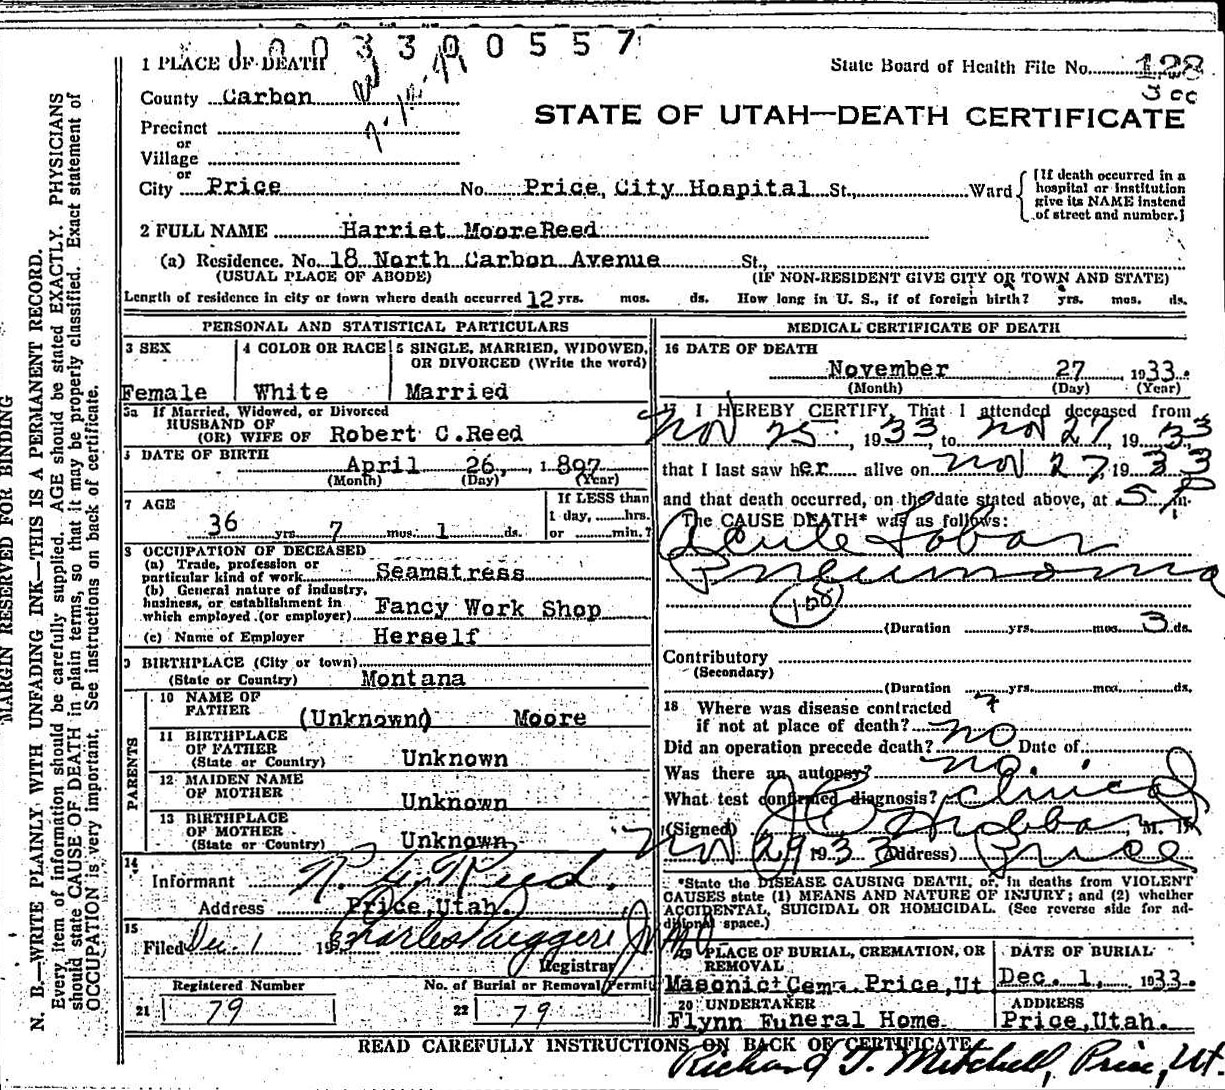 1003300557
1 PLACE OF DEATH
State Board of Health File No. 128
County Carbon
300
STATE OF UTAH—DEATH CERTIFICATE
Precinct
or
Village
or
City Price No. Price, City Hospital St., Ward
[If death occurred in a hospital or institution give its NAME instead of street and number.]
2 FULL NAME Harriet MooreReed
(a) Residence. No. 18 North Carbon Avenue St.,
(USUAL PLACE OF ABODE) (IF NON-RESIDENT GIVE CITY OR TOWN AND STATE)
Length of residence in city or town where death occurred 12 yrs. mos. ds. How long in U. S., if of foreign birth? yrs. mos. ds.
PERSONAL AND STATISTICAL PARTICULARS
3 SEX
Female
4 COLOR OR RACE
White
5 SINGLE, MARRIED, WIDOWED, OR DIVORCED (Write the word)
Married
5a If Married, Widowed, or Divorced
HUSBAND OF
(OR) WIFE OF Robert C.Reed
DATE OF BIRTH
April 26, 1897
(Month) (Day) (Year)
7 AGE
36 yrs. 7 mos. 1 ds.
If LESS than
1 day, hrs.
or min.?
8 OCCUPATION OF DECEASED
(a) Trade, profession or
particular kind of work Seamstress
(b) General nature of industry,
business, or establishment in
which employed (or employer) Fancy Work Shop
(c) Name of Employer Herself
9 BIRTHPLACE (City or town)
(State or Country) Montana
PARENTS
10 NAME OF
FATHER (Unknown) Moore
11 BIRTHPLACE
OF FATHER
(State or Country) Unknown
12 MAIDEN NAME
OF MOTHER
Unknown
13 BIRTHPLACE
OF MOTHER
(State or Country) Unknown
14
Informant R. C. Reed.
Address Price,Utah.
15
Filed Dec. 1 1933 Charles Ruggeri Jr MD
Registrar
Registered Number No. of Burial or Removal Permit
21 79 22 79
MEDICAL CERTIFICATE OF DEATH
16 DATE OF DEATH
November 27 1933.
(Month) (Day) (Year)
I HEREBY CERTIFY, That I attended deceased from
Nov 25, 1933, to Nov 27, 1933
that I last saw her alive on Nov 27, 1933
and that death occurred, on the date stated above, at 5 P m.
The CAUSE DEATH* was as follows:
Acute Lobar
Pneumonia
108
(Duration yrs. mos. 3 ds.
Contributory
(Secondary)
(Duration yrs. mos. ds.
18 Where was disease contracted
if not at place of death? ?
Did an operation precede death? no Date of
Was there an autopsy? no.
What test confirmed diagnosis? Clinical
(Signed) M. D.
Nov 29 1933 (Address) Price
*State the DISEASE CAUSING DEATH, or, in deaths from VIOLENT
CAUSES state (1) MEANS AND NATURE OF INJURY; and (2) whether
ACCIDENTAL, SUICIDAL OR HOMICIDAL. (See reverse side for ad-
ditional space.)
PLACE OF BURIAL, CREMATION, OR
REMOVAL
Masonic Cem. Price,Ut
DATE OF BURIAL
Dec. 1, 1933.
20 UNDERTAKER
Flynn Funeral Home
ADDRESS
Price,Utah.
READ CAREFULLY INSTRUCTIONS ON BACK OF CERTIFICATE
Richard T. Mitchell, Price, Ut.
MARGIN RESERVED FOR BINDING
N. B.—WRITE PLAINLY WITH UNFADING INK—THIS IS A PERMANENT RECORD.
Every item of information should be carefully supplied. AGE should be stated EXACTLY. PHYSICIANS
should state CAUSE OF DEATH in plain terms, so that it may be properly classified. Exact statement of
OCCUPATION is very important. See instructions on back of certificate.